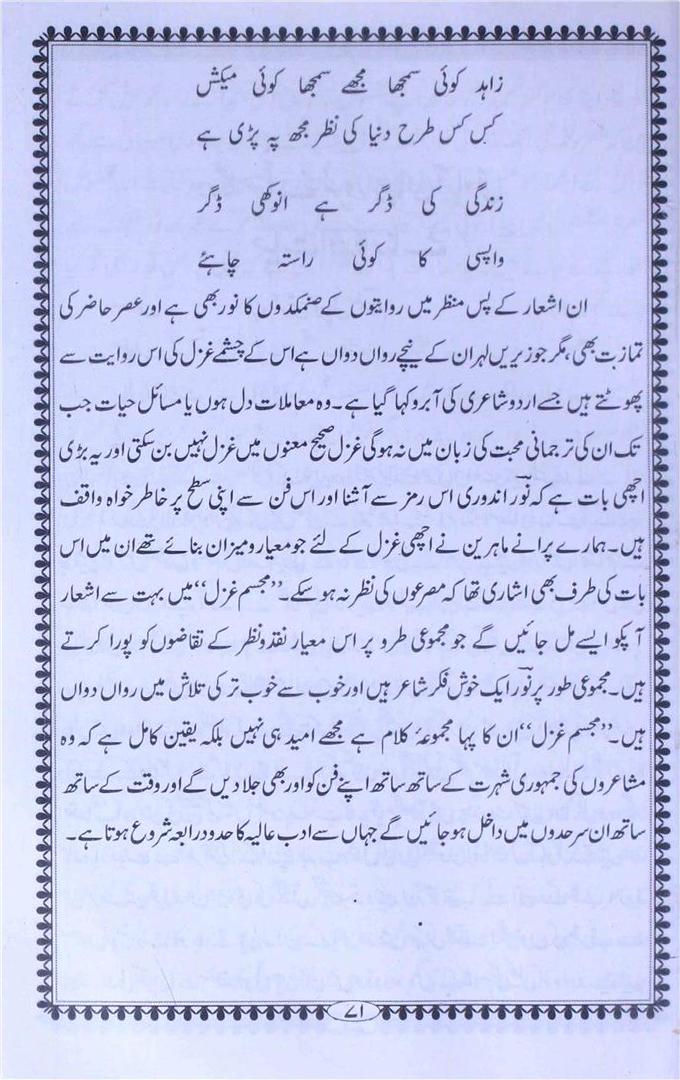 زاہد کوئی سمجھا مجھے سمجھا کوئی میکش
کس کس طرح دنیا کی نظر مجھ پہ پڑی ہے
زندگی کی ڈگر ہے انوکھی ڈگر
واپسی کا کوئی راستہ چاہئے
ان اشعار کے پس منظر میں روایتوں کے صنمکدوں کا نور بھی ہے اور عصر حاضر کی
تمازت بھی، مگر جو زیریں لہر ان کے نیچے رواں دواں ہے اس کے چشمے غزل کی اس روایت سے
پھوٹتے ہیں جسے اردو شاعری کی آبرو کہا گیا ہے۔ وہ معاملات دل ہوں یا مسائل حیات جب
تک ان کی ترجمانی محبت کی زبان میں نہ ہوگی غزل صحیح معنوں میں غزل نہیں بن سکتی اور یہ بڑی
اچھی بات ہے کہ نورؔ اندوری اس رمز سے آشنا اور اس فن سے اپنی سطح پر خاطر خواہ واقف
ہیں۔ ہمارے پرانے ماہرین نے اچھی غزل کے لئے جو معیار و میزان بنائے تھے ان میں اس
بات کی طرف بھی اشاری تھا کہ مصرعوں کی نظر نہ ہو سکے۔ ”مجسم غزل“ میں بہت سے اشعار
آپکو ایسے مل جائیں گے جو مجموعی طرو پر اس معیار نقد و نظر کے تقاضوں کو پورا کرتے
ہیں۔ مجموعی طور پر نورؔ ایک خوش فکر شاعر ہیں اور خوب سے خوب تر کی تلاش میں رواں دواں
ہیں۔ ”مجسم غزل“ ان کا پہا مجموعۂ کلام ہے مجھے امید ہی نہیں بلکہ یقین کامل ہے کہ وہ
مشاعروں کی جمہوری شہرت کے ساتھ ساتھ اپنے فن کو اور بھی جلا دیں گے اور وقت کے ساتھ
ساتھ ان سرحدوں میں داخل ہو جائیں گے جہاں سے ادب عالیہ کا حدود رالعہ شروع ہوتا ہے۔
۷۱